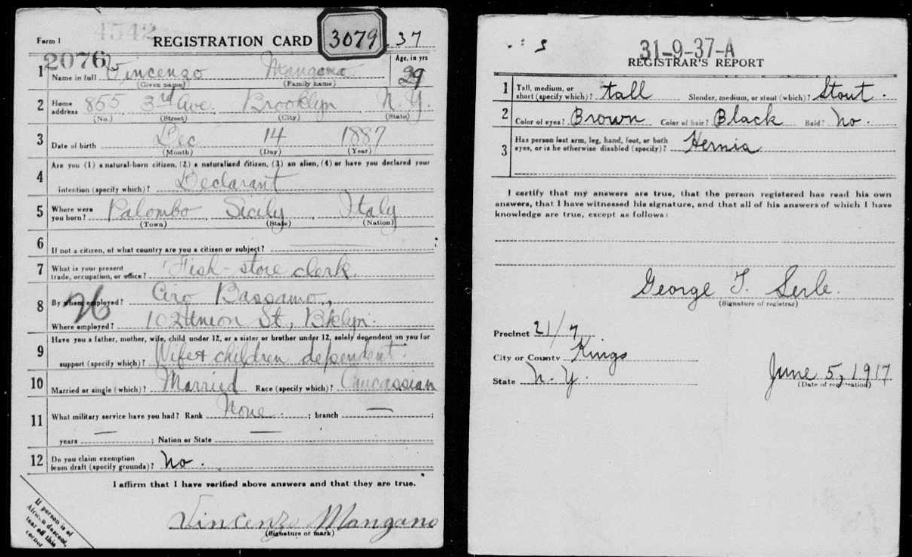 4542
Form 1 REGISTRATION CARD 3079 37
2076
1 Name in full Vincenzo Mangano Age, in yrs 29
(Given name) (Family name)
2 Home address 855 3rd Ave. Brooklyn N.Y.
(No.) (Street) (City) (State)
3 Date of birth Dec 14 1887
(Month) (Day) (Year)
4 Are you (1) a natural-born citizen, (2) a naturalized citizen, (3) an alien, (4) or have you declared your
intention (specify which)? Declarant
5 Where were you born? Palombo Sicily Italy
(Town) (State) (Nation)
6 If not a citizen, of what country are you a citizen or subject?
7 What is your present trade, occupation, or office? Fish-store clerk
8 By whom employed? Ciro Bassamo,
26
Where employed? 102 Union St., Bklyn.
9 Have you a father, mother, wife, child under 12, or a sister or brother under 12, solely dependent on you for
support (specify which)? Wife & children dependent.
10 Married or single (which)? Married Race (specify which)? Caucassian
11 What military service have you had? Rank None ; branch — ;
years — ; Nation or State —
12 Do you claim exemption from draft (specify grounds)? No.
I affirm that I have verified above answers and that they are true.
Vincenzo Mangano
(Signature or mark)
If person is of
African descent,
tear off this
corner
31-9-37-A
REGISTRAR'S REPORT
1 Tall, medium, or short (specify which)? tall Slender, medium, or stout (which)? Stout.
2 Color of eyes? Brown Color of hair? Black Bald? No.
3 Has person lost arm, leg, hand, foot, or both eyes, or is he otherwise disabled (specify)? Hernia
I certify that my answers are true, that the person registered has read his own
answers, that I have witnessed his signature, and that all of his answers of which I have
knowledge are true, except as follows:
George T. Serle.
(Signature of registrar)
Precinct 21/7
City or County Kings
State N.Y. June 5, 1917
(Date of registration)